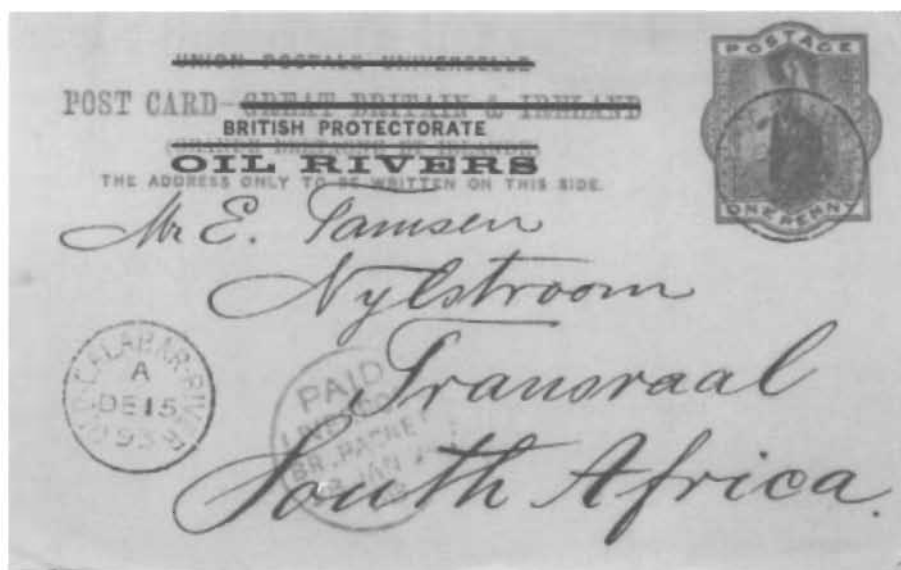 UNION POSTALE UNIVERSELLE
POST CARD - GREAT BRITAIN & IRELAND
BRITISH PROTECTORATE
OIL RIVERS
THE ADDRESS ONLY TO BE WRITTEN ON THIS SIDE.
POSTAGE
ONE PENNY
Mr E. Tamsen
Nylstroom
Transvaal
South Africa.
OLD CALABAR RIVER
A
DE 15
93
PAID
BR. PACKET
JAN